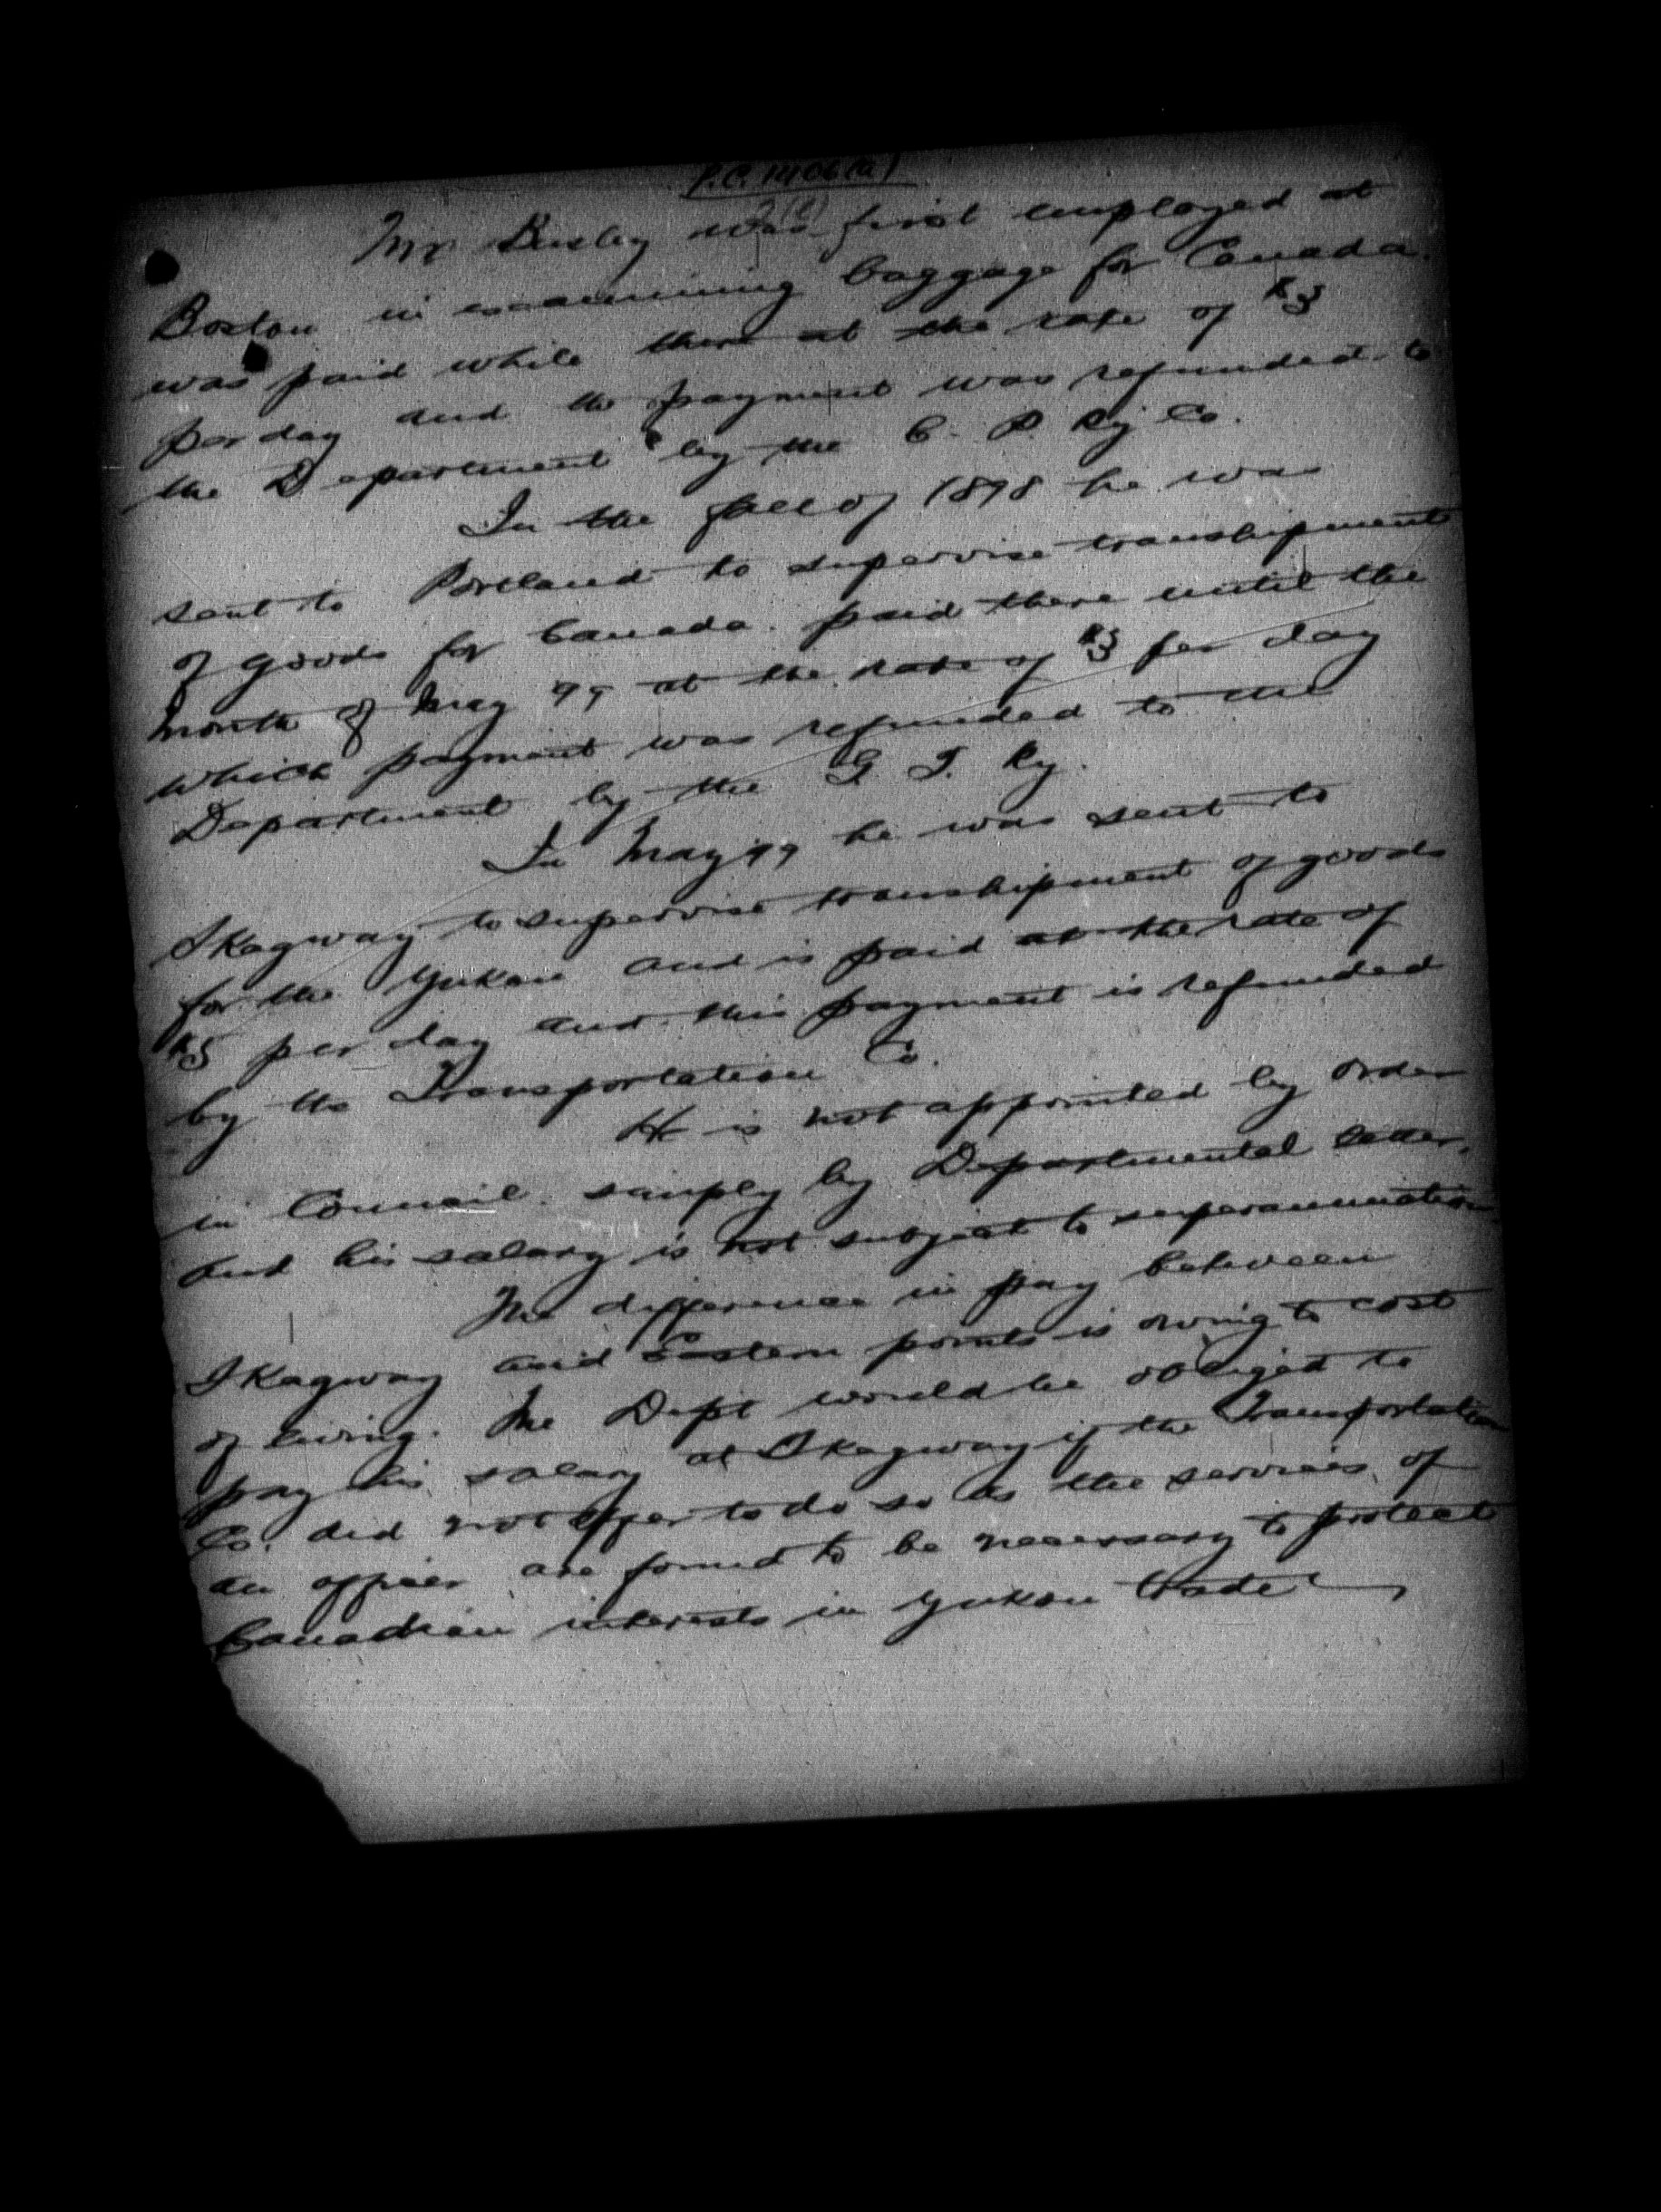 Mr Busby was first employed at
Boston in examining baggage for Canada.
was paid while there at the rate of $3
per day and the payment was refunded to
the Department by the C. P. Ry Co.
In the fall of 1898 he was
sent to Portland to supervise transhipment
of goods for Canada. paid there until the
month of May 99 at the rate of $3 per day
which payment was refunded to the
Department by the G. T. Ry.
In May 99 he was sent to
Skagway to supervise transhipment of goods
for the Yukon and is paid at the rate of
$5 per day and this payment is refunded
by the Transportation Co.
He is not appointed by order
in Council. simply by Departmental letter,
and his salary is not subject to superannuation
The difference in pay between
Skagway and Eastern points is owing to cost
of living. The Dept would be obliged to
pay his salary at Skagway if the Transportation
Co. did not offer to do so as the services of
an officer are found to be necessary to protect
Canadian interests in Yukon trade